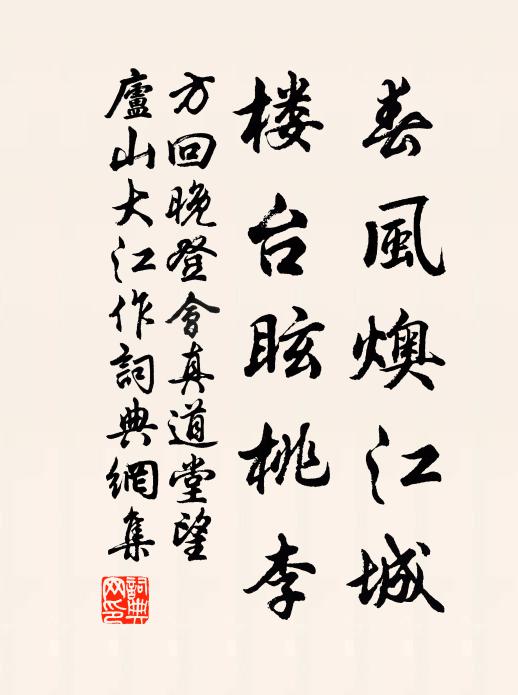 春風燠江城
楼台眩桃李
方回晚登會真道堂望
廬山大江作詞典網集
詞典网印